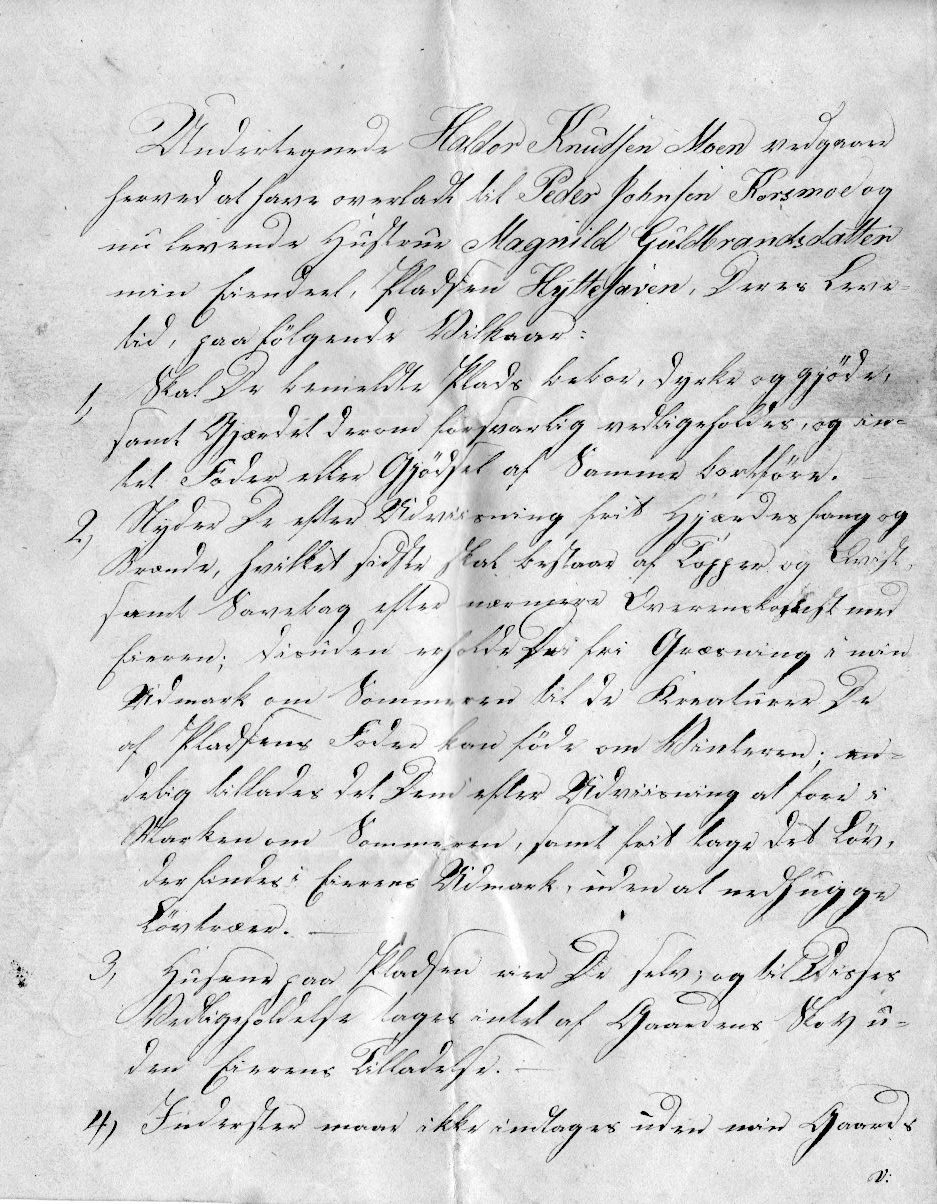 Undertegnede Haldor Knudsen Moen vedgaaer
herved at have overladt til Peder Johnsen Korsmoe og
nu levende Hustrue Magnild Guldbrandsdatter
min Eiendeel, Pladsen Hyttehaven, Deres Leve-
tid, paa følgende Vilkaar:
1, Skal De bemeldte Plads beboe, dyrke og gjöde,
samt Gjærdet derom forsvarlig vedligeholdes, og in-
tet Foder eller Gjödsel af Samme bortföre.
2, Nyder De efter Udviisning frit Hjærdesfang og
Brænde, hvilket sidste skal bestaae af Topper og Qvist,
samt Savebag efter nærmere Overenskomst med
Eieren; desuden erholde De fri Græsning i min
Udmark om Sommeren til de Kreaturer De
af Pladsens Foder kan föde om Vinteren; en-
delig tillades det Dem efter Udviisning at fore i
Marken om Sommeren, samt frit tage det Löv,
der findes i Eierens Udmark, uden at nedhugge
Lövtræer. —
3, Husene paa Pladsen eier De selv; og til Disses
Vedligeholdelse tages intet af Gaardens Skov u-
den Eierens Tilladelse. —
4, Inderster maae ikke indtages uden min Gaards
v: